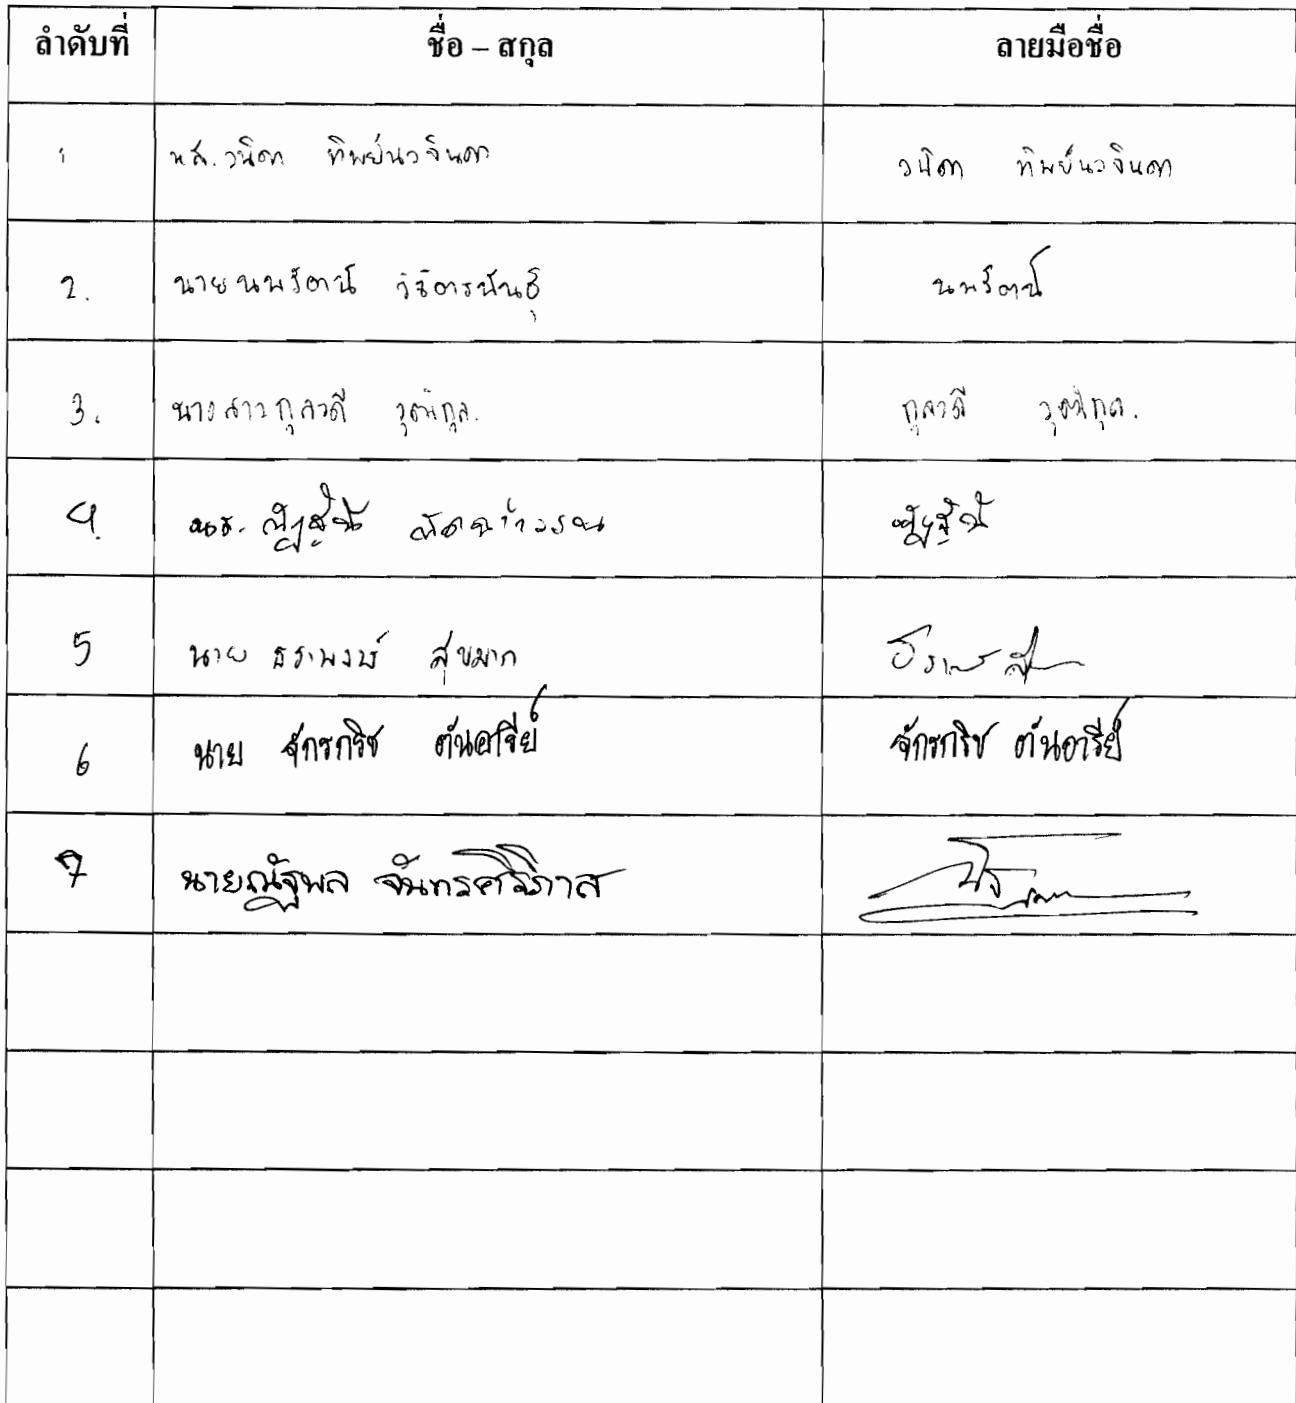 ลำดับที่ ชื่อ – สกุล ลายมือชื่อ
1 นส.วนิดา ทิพย์นวจินดา วนิดา ทิพย์นวจินดา
2. นายนพรัตน์ วิจิตรพันธุ์ นพรัตน์
3. นางสาวกุลวดี วุฒิกุล. กุลวดี วุฒิกุล.
4. นส.
5 นาย ธีรพงษ์ สุขมาก
6 นาย จักรกริช ตันอารีย์ จักรกริช ตันอารีย์
7 นายณัฐพล จันทรศิริภาส